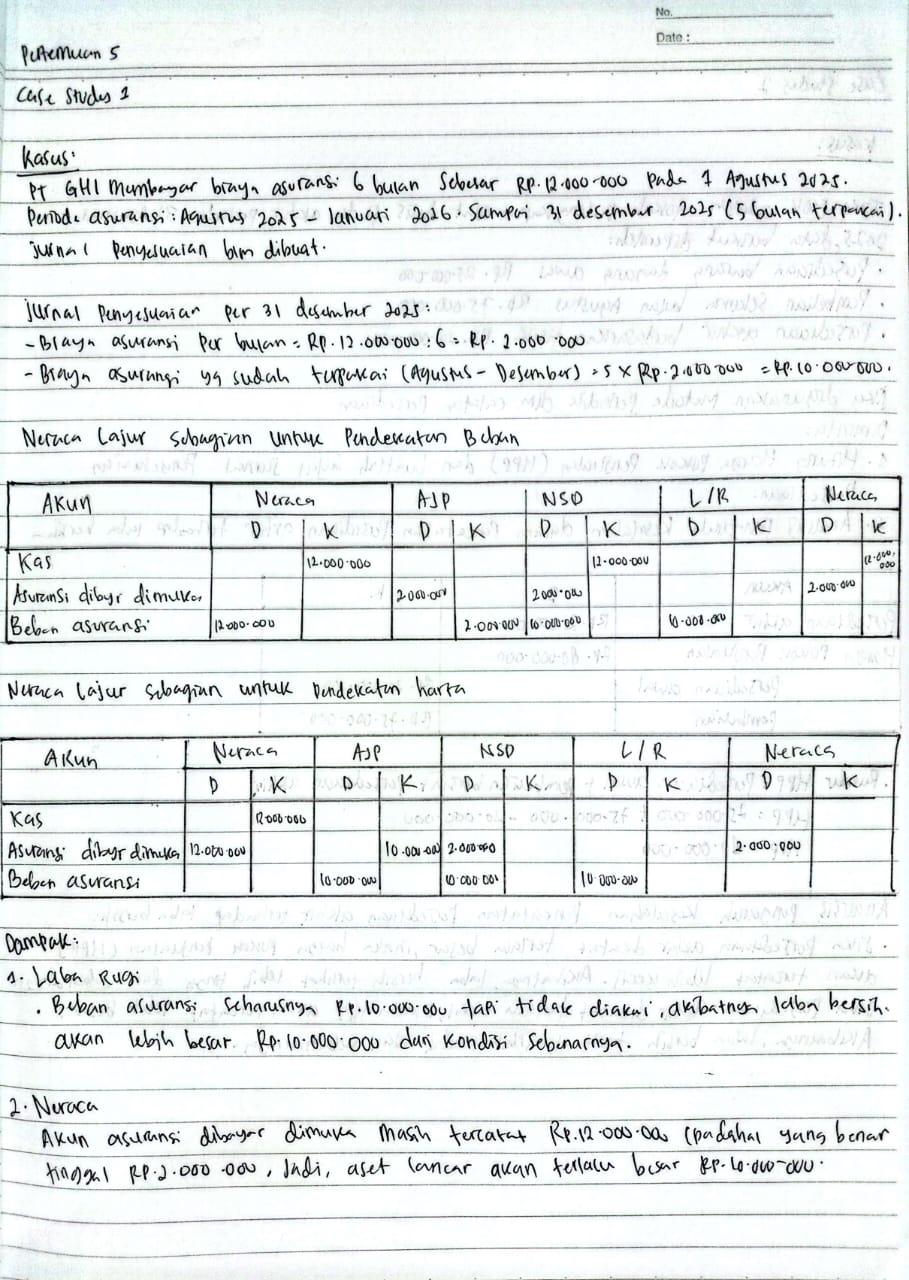 No.
Date :
Pertemuan 5
Case Studes 1
Kasus:
PT GHI Membayar biaya asuransi 6 bulan Sebesar RP.12.000.000 Pada 1 Agustus 2025.
Periode asuransi : Agustus 2025 - Januari 2026. Sampai 31 desember 2025 (5 bulan terpakai).
jurnal Penyesuaian blm dibuat.
Jurnal Penyesuaian Per 31 desember 2025:
- Biaya asuransi Per bulan = RP. 12.000.000 : 6 = RP. 2.000.000
- Biaya asuransi yg sudah terpakai (Agustus - Desember) = 5 x RP. 2.000.000 = RP. 10.000.000.
Neraca Lajur Sebagian Untuk Pendekatan Beban
AKUN Neraca AJP NSD L/R Neraca
D K D K D K D K D K
Kas 12.000.000 12.000.000 12.000.000
Asuransi dibayr dimuka 2.000.000 2.000.000 2.000.000
Beban asuransi 12.000.000 2.000.000 10.000.000 10.000.000
Neraca lajur sebagian untuk Pendekatan harta
AKun Neraca AJP NSD L/R Neraca
D K D K D K D K D K
Kas 12.000.000
Asuransi dibayr dimuka 12.000.000 10.000.000 2.000.000 2.000.000
Beban asuransi 10.000.000 10.000.000 10.000.000
Dampak:
1. Laba Rugi
• Beban asuransi Seharusnya RP.10.000.000 tapi tidak diakui, akibatnya laba bersih
akan lebih besar RP.10.000.000 dari Kondisi Sebenarnya.
2. Neraca
Akun asuransi dibayar dimuka Masih tercatat RP.12.000.000 (padahal yang benar
tinggal RP.2.000.000, Jadi, aset lancar akan terlalu besar RP.10.000.000.